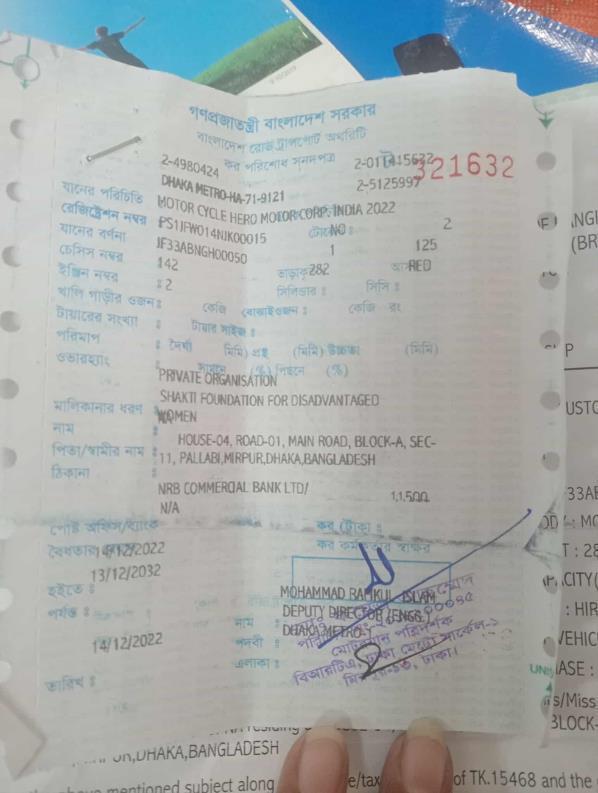 গণপ্রজাতন্ত্রী বাংলাদেশ সরকার
বাংলাদেশ রোড ট্রান্সপোর্ট অথরিটি
কর পরিশোধ সনদপত্র
2-4980424
321632
যানের পরিচিতি DHAKA METRO-HA-71-9121 2-5125997
রেজিষ্ট্রেশন নম্বর MOTOR CYCLE HERO MOTOR CORP. INDIA 2022
যানের বর্ণনা PS1JFW014NJK00015 NO 2
চেসিস নম্বর JF33ABNGH00050 1 125
ইঞ্জিন নম্বর : 142 282 RED
খালি গাড়ীর ওজন : 2 কেজি বোঝাই ওজন : কেজি রং
সিলিন্ডার : সিসি :
টায়ারের সংখ্যা : টায়ার সাইজ :
পরিমাপ : দৈর্ঘ্য (মিমি) প্রস্থ (মিমি) উচ্চতা (মিমি)
ওভারহ্যাং (%) পিছনে (%)
PRIVATE ORGANISATION
মালিকানার ধরণ SHAKTI FOUNDATION FOR DISADVANTAGED
নাম WOMEN
পিতা/স্বামীর নাম : HOUSE-04, ROAD-01, MAIN ROAD, BLOCK-A, SEC-
ঠিকানা 11, PALLABI,MIRPUR,DHAKA,BANGLADESH
NRB COMMERCIAL BANK LTD/ 1,1,500
N/A
পোষ্ট অফিস/ব্যাংক কর (টাকা :
বৈধতার 14/12/2022 কর কর্মকর্তার স্বাক্ষর
হইতে : 13/12/2032
MOHAMMAD RAFIKUL ISLAM
পর্যন্ত : নাম : DEPUTY DIRECTOR (ENGG.)
পদবী : DHAKA METRO-1
14/12/2022
এলাকা :
তারিখ :
মোটরযান পরিদর্শক
বিআরটিএ, ঢাকা মেট্রো সার্কেল-১
ঢাকা।
(BR
P
USTO
33AB
: MO
T : 28
CITY(
: HIR
VEHIC
ASE :
s/Miss
BLOCK-
residing
,DHAKA,BANGLADESH
mentioned subject along e/tax of TK.15468 and the